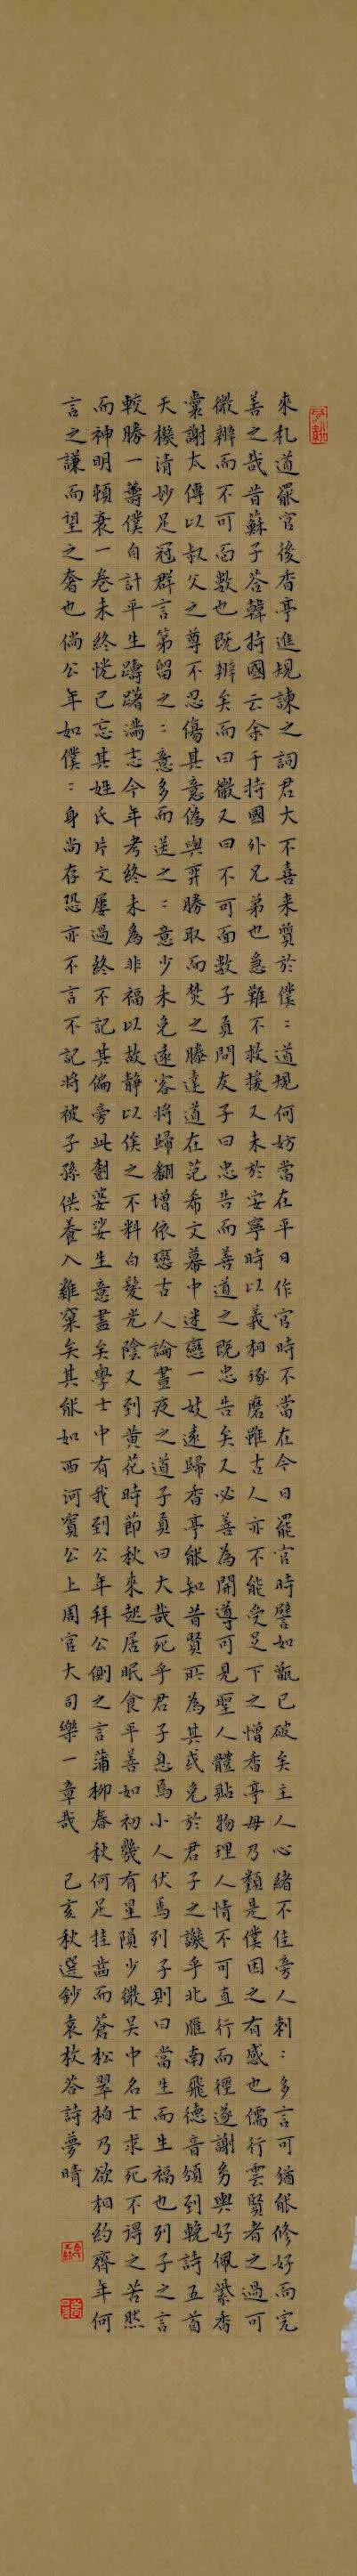 來札道罷官後香亭進規諫之詞君大不喜來質於僕：道規何妨當在平日作官時不當在今日罷官時譬如甑已破矣主人心緒不佳旁人刺：多言可猶能修好而完
善之哉昔蘇子荅韓持國云余于持國外兄弟也急難不救援又未於安寧時以義相琢磨雖古人亦不能受足下之憎香亭毋乃類是僕因之有感也儒行雲賢者之過可
微辨而不可面數也既辨矣而曰微又曰不可面數子貢問友子曰忠告而善道之既忠告矣又必善為開導可見聖人體貼物理人情不可直行而徑遂謝多與好佩紫香
囊謝太傅以叔父之尊不忍傷其意偽與弈勝取而焚之滕達道在范希文幕中迷戀一妓遠歸香亭能知昔賢所為其或免於君子之譏乎北雁南飛德音頒到輓詩五首
天機清妙足冠群言第留之：意多而送之：意少未免遠客將歸翻增依戀古人論晝夜之道子貢曰大哉死乎君子息焉小人伏焉列子則曰當生而生福也列子之言
較勝一籌僕自計平生躊躇滿志今年考終未為非福以故靜以俟之不料白髮光陰又到黃花時節秋來起居眠食平善如初幾有星隕少微吳中名士求死不得之苦然
而神明頓衰一卷未終恍已忘其姓氏片文屢過終不記其偏旁此對婆娑生意盡矣學士中有我到公年拜公側之言蒲柳春秋何足挂齒而蒼松翠柏乃欲相約齊年何
言之謙而望之奢也倘公年如僕：身尚存恐亦不言不記將被子孫供養入雞窠矣其能如西河竇公上周官大司樂一章哉 己亥秋選鈔袁枚荅詩夢晴